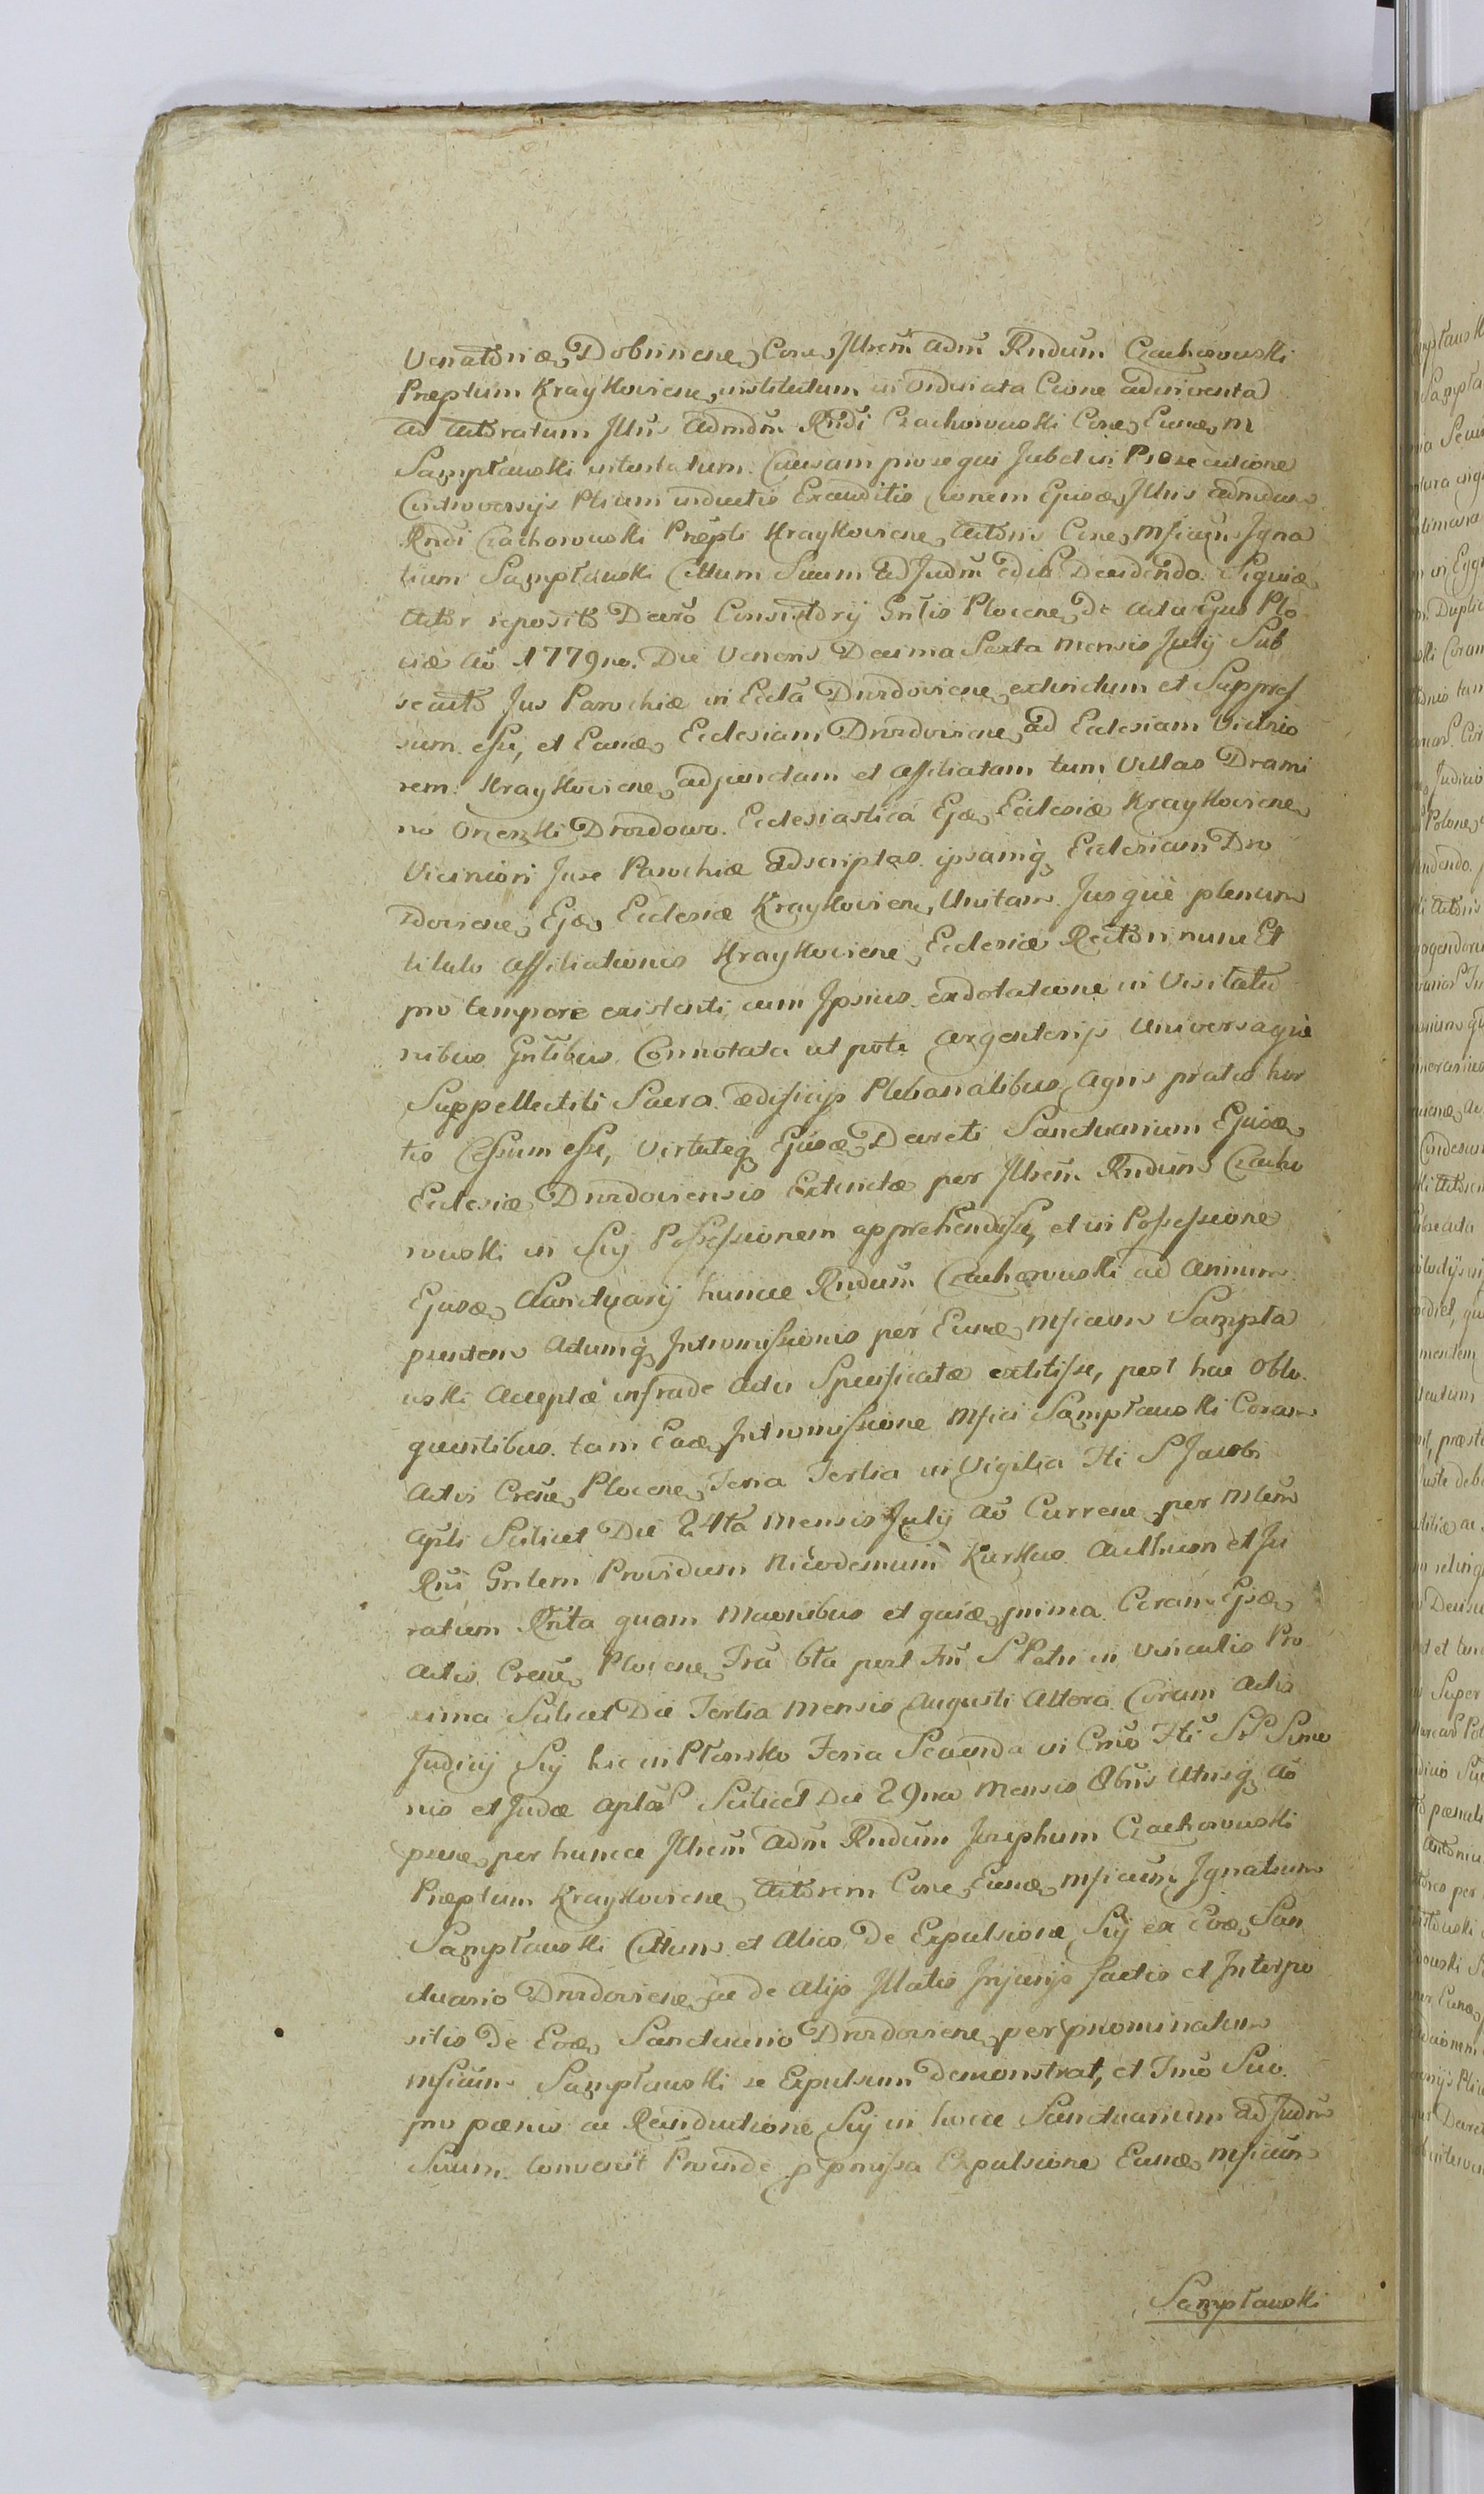 Venatoriæ Dobrinens, Cone, Jllrem adm Rndum Czachorowski
Præptum Kraykoviens, institutum in Ordinata Cione adinventa
ad Actoratum Jllris Admdm Rndi Czachorowski Cone, Eund, M
Sampławski intentatum. Causam prosequi Jubet in Prosecutione
Controversijs Ptium inductis Exauditis Cionem Ejusd, Jllris admdum
Rndi Czachorowski Præpti Kraykoviens, Actoris Cone, Mficum Jgna
tium Sampławski Cittum Suum ad Judm Decidendo. Siquid
Actor reposito Decro Consistorij Gnlis Plocens, De Actu Ejus Plo
ciæ Ao 1779no. Die Veneris Decima Sexta mensis Julij Sub
secuto Jus Parochiæ in Eccla Drozdoviens, extinctum et Suppres
sum esse, et Eand, Ecclesiam Drozdoviens, ad Ecclesiam Vicinio
rem Kraykoviens, adjunctam et affiliatam tum Villas Drami
no Orzeszki Drozdowo. Ecclesiastica Ejd, Ecclesiæ Kraykoviens,
Viciniori Jure Parochiæ adscriptas ipsamq Ecclesiam Dro
zdoviens, Ejd, Ecclesiæ Kraykoviens, Unitam Jusque plenum
titulo affiliationis Kraykoviens, Ecclesiæ Rectori nunc Et
pro tempore existenti cum Jpsius exdotatione in Visitatio
nibus Gnlibus Connotata ut pote argenterijs Universaque
Suppellectili Sacra ædificijs Plebanalibus Agris pratis hor
tis Cessum esse, Virtuteq Ejusd, Decreti Sanctuarium Ejusd,
Ecclesiæ Drozdoviensis Extinctæ per Jllrem Rndum Czacho
rowski in Sui Possessionem apprehendisse, et in Possessione
Ejusd, Sanctuarij huncce Rndum Czachorowski ad annum
puntem Actumq Intromissionis per Eund, Mficum Sampła
wski Acceptæ infra de Actu Specificatæ extitisse, post hac Oblo
quentibus tam Ead, Intromissione Mfici Sampławski Coram
Actis Crens, Plocens, Feria Tertia in Vigilia Fti S Jacobi
Apli Scilicet Die 24ta Mensis Julij Ao Currens per Mlem
Rni Gnlem Providum Nicodemum Kurkus Authum et Ju
ratum Rnta quam Maonibus et quid, prima Coram Ejsd,
Actis Crens, Plocens, Fra 6ta post Fm S Petri in Vinculis Pro
xima Scilicet Die Tertia Mensis Augusti Altera Coram Actis
Judicij Sui hic in Płonsko Feria Secunda in Crno Fti SS Simo
nis et Judæ Aptor Scilicet Die 29na Mensis 8bris Utrisq Ao
puns, per huncce Jllrem Adm Rndum Josephum Czachorowski
Præptum Kraykoviens, Actorem Cone, Eund, Mficum Jgnatium
Sampławski Cittum et Alios De Expulsione Sui ex Eod, San
ctuario Drozdoviens, ac de Alijs Jllatis Jnjurijs factis et Jnterpo
sitis De Eod, Sanctuario Drozdoviens, per pnominatum
Mficum Sampławski se Expulsum Demonstrat, et Fmo Suo
pro pænis ac Reinductione Sui in hocce Sanctuarium ad Judm
Suum Convenit Proinde p pmissa Expulsione Eund, Mficum
Sampławski